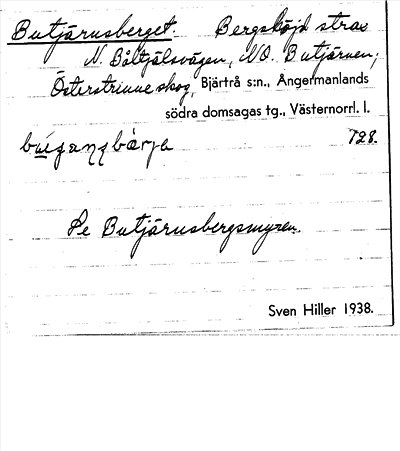 Butjärusberget. Bergshöjd strax
N. Båltjälsvägen, NO. Butjärnen;
Österstrinne skog, Bjärtrå s:n., Ångermanlands
södra domsagas tg., Västernorrl. l.
728.
Se Butjärusbergsmyren.
Sven Hiller 1938.